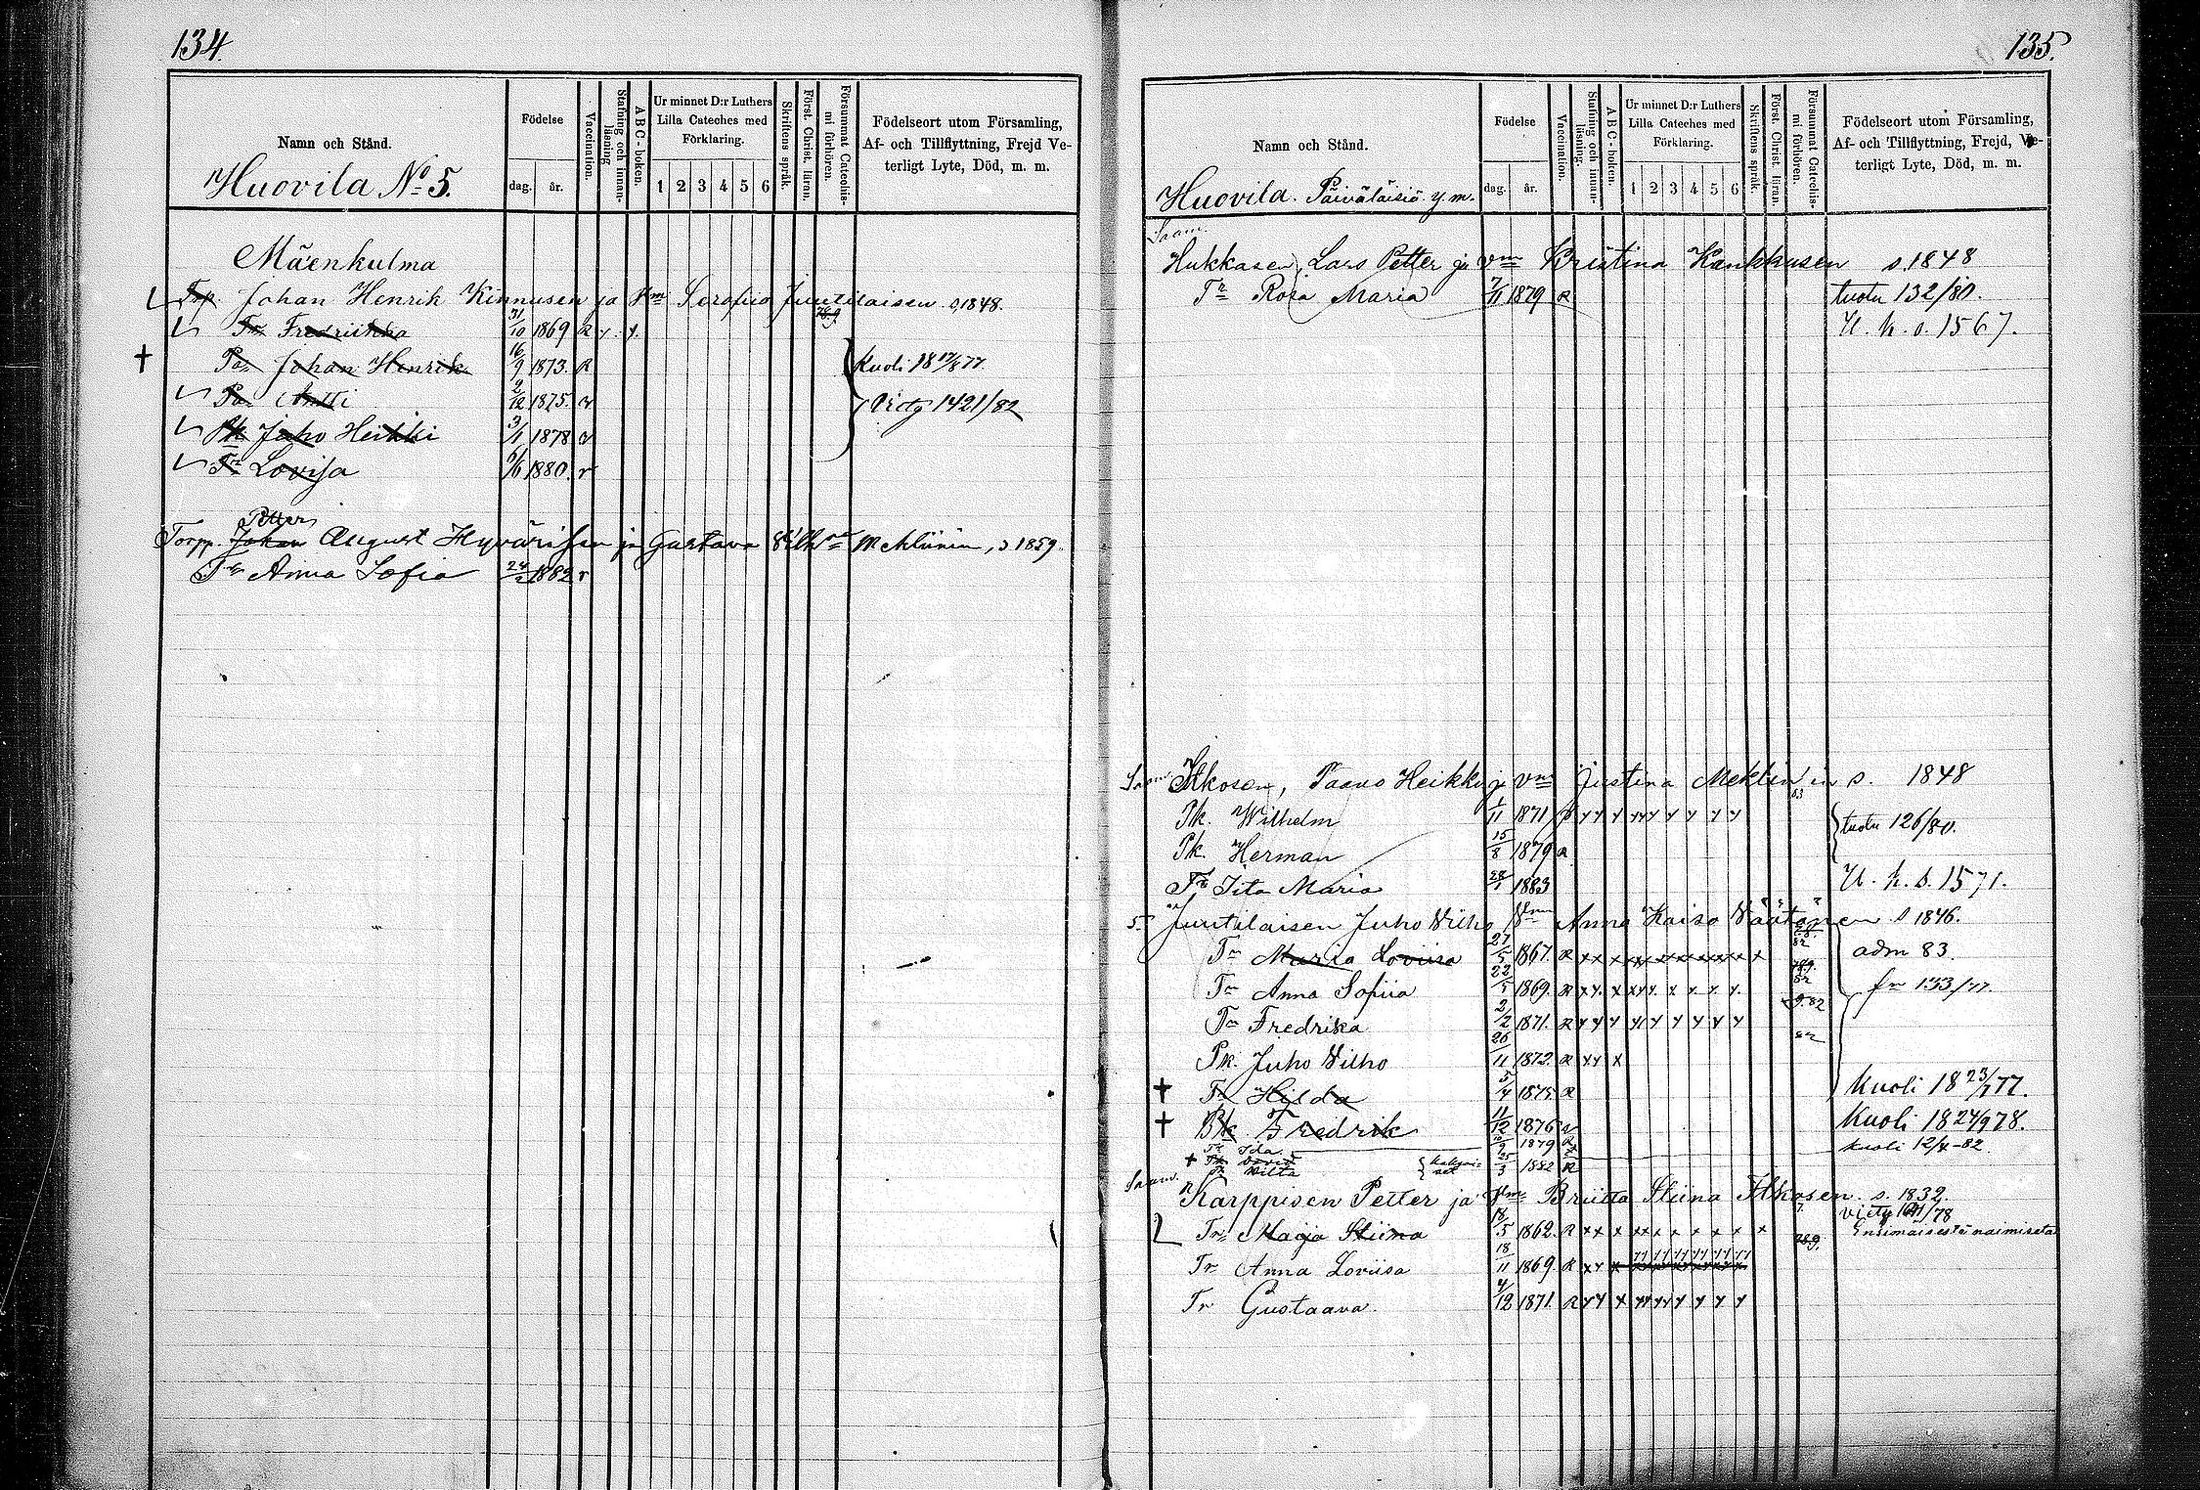 134.
Namn och Stånd.
Huovila No 5.
Födelse
dag. år.
Vaccination.
Stafning och innan-läsning.
ABC-boken.
Ur minnet D:r Luthers
Lilla Cateches med
Förklaring.
1 2 3 4 5 6
Skriftens språk.
Först. Christ. läran.
Försummat Catechis-
mi förhören.
Födelseort utom Församling,
Af- och Tillflyttning, Frejd Ve-
terligt Lyte, Död, m. m.
Mäenkulma
Trp. Johan Henrik Kinnusen ja Vm Serafiia Juutilaisen s. 1848.
Tr Fredriikka 31/10 1869 R y. y.
Pa Johan Henrik 16/9 1873. R Kuoli 18 17/8 77.
Pa Antti 2/12 1875. Viety 1421/82
Pk Juho Heikki 3/1 1878
Tr Lovisa 6/6 1880. r
Petter
Torpp. Johan August Hyvärisen ja Gustava Meklinin, s 1859.
Tr Anna Sofia 24/2 1882 r
135.
Namn och Stånd.
Huovila. Päiväläisiä y.m.
Födelse
dag. år.
Vaccination.
Stafning och innan-läsning.
ABC-boken.
Ur minnet D:r Luthers
Lilla Cateches med
Förklaring.
1 2 3 4 5 6
Skriftens språk.
Först. Christ. läran.
Försummat Catechis-
mi förhören.
Födelseort utom Församling,
Af- och Tillflyttning, Frejd, Ve-
terligt Lyte, Död, m. m.
Saam.
Hukkasen, Lars Petter ja Vm Kristina Kankkusen s. 1848
Tr Rosa Maria 7/11 1879 R tuotu 132/80.
U. k. s. 1567.
Saam. Itkosen, Paavo Heikki ja Vm Justina Meklinin s. 1848
Pk. Wilhelm 1/11 1871 y y y y y y y y y tuotu 126/80.
Pk. Herman 15/8 1879 R
Tr Iita Maria 28/1 1883 U. k. s. 1571.
S. Juutilaisen Juho Vilho Vm Anna Kaisa Väätäsen s 1846.
Tr Maria Loviisa 27/5 1867. R x x x x x x x x x x adm 83.
Tr Anna Sofiia 22/5 1869. R x y. x x y y. x x. y. y. fr 133/77.
Tr Fredrika 2/2 1871. R y y y y y y y y y
Pk. Juho Vilho 26/11 1872. R x y x
✝ Tr Hilda 5/4 1875 R Kuoli 18 23/7 77.
✝ Pk. Fredrik 11/12 1876 Kuoli 18 24/9 78.
Tr Ida 1879 R kuoli 12/4-82
✝ Pk David
Tr Vilta 25/3 1882 R
Saam. Karppisen Petter ja Vm Briitta Stiina Itkosen. s. 1832.
Tr Maija Stiina 18/5 1862. R x x x x x x x x x x x Ensimäisestä naimisesta
Tr Anna Loviisa 18/11 1869. R x y x
Tr Gustaava. 4/12 1871. R y y x y y y y y y y y